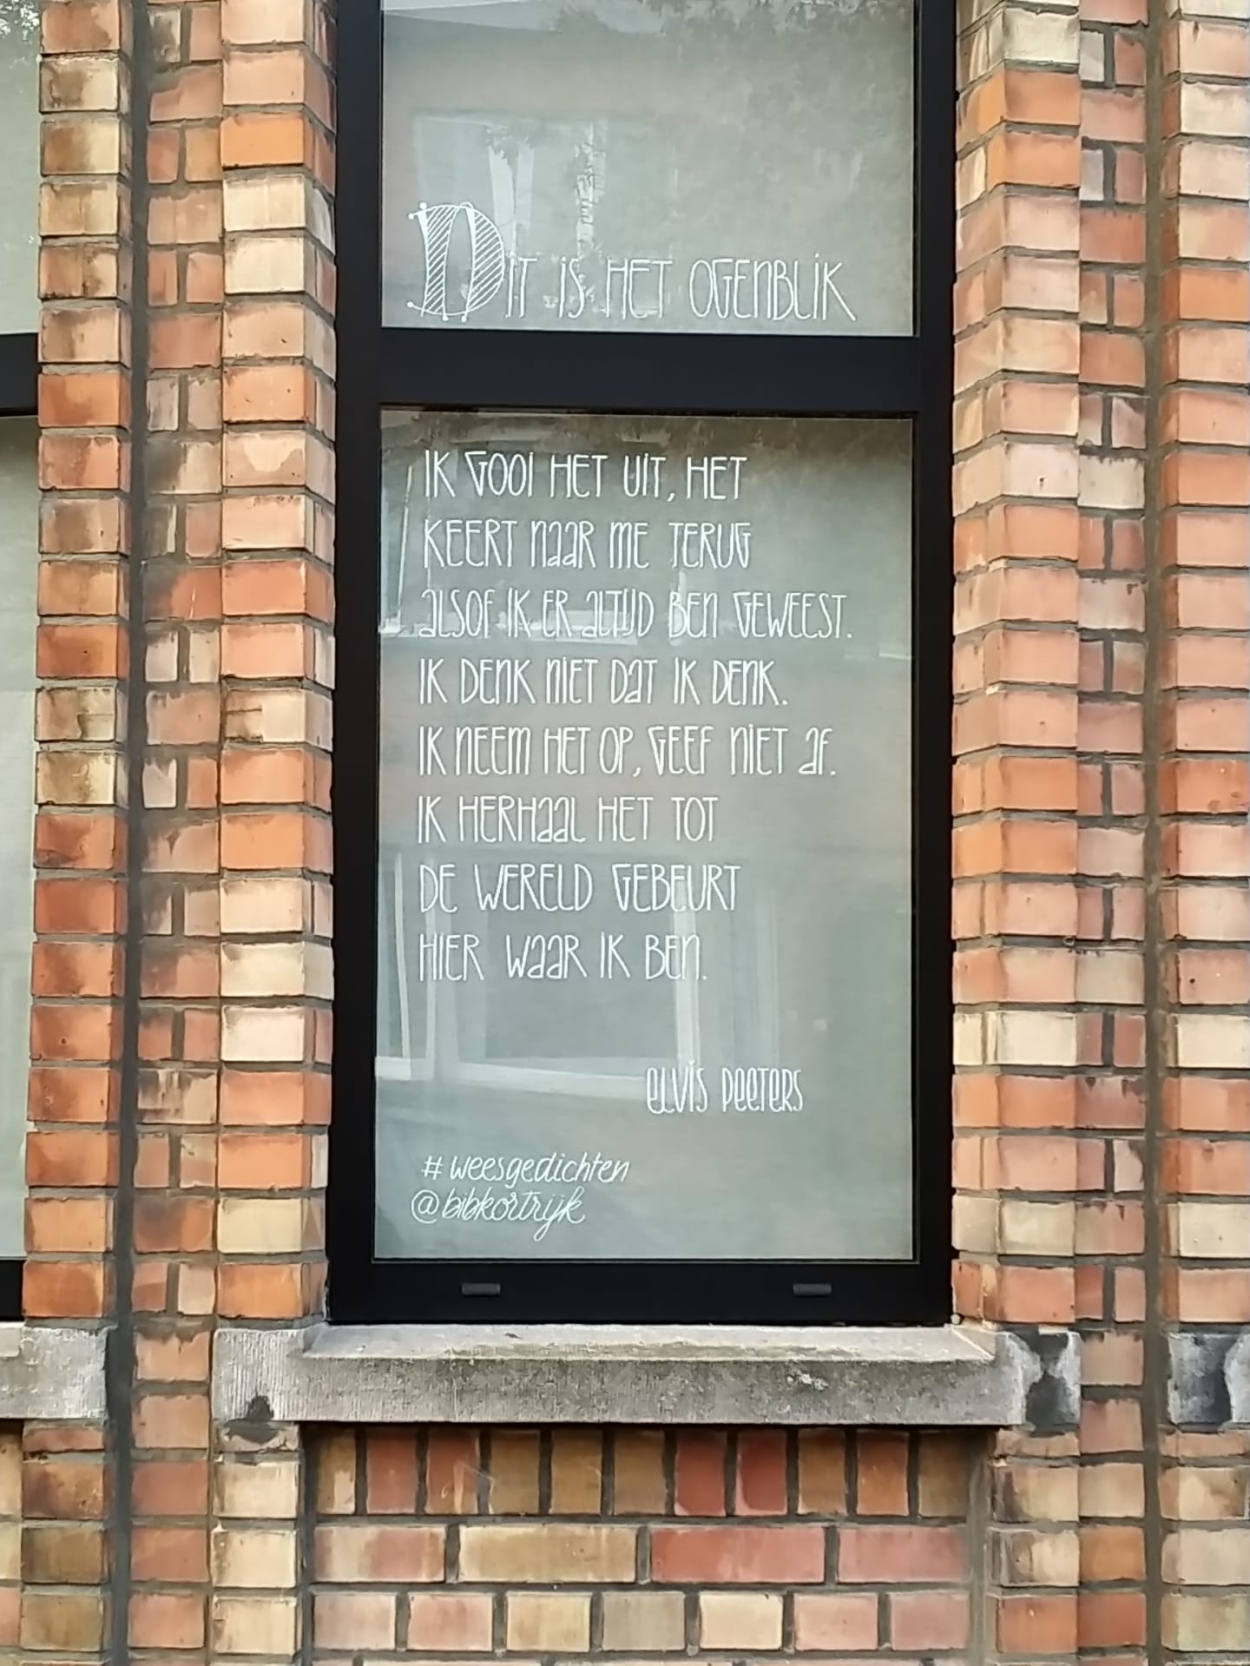 Dit is het ogenblik
Ik gooi het uit, het
keert naar me terug
alsof ik er altijd ben geweest.
Ik denk niet dat ik denk.
Ik neem het op, geef niet af.
Ik herhaal het tot
de wereld gebeurt
hier waar ik ben.
Elvis Peeters
#weesgedichten
@bibkortrijk